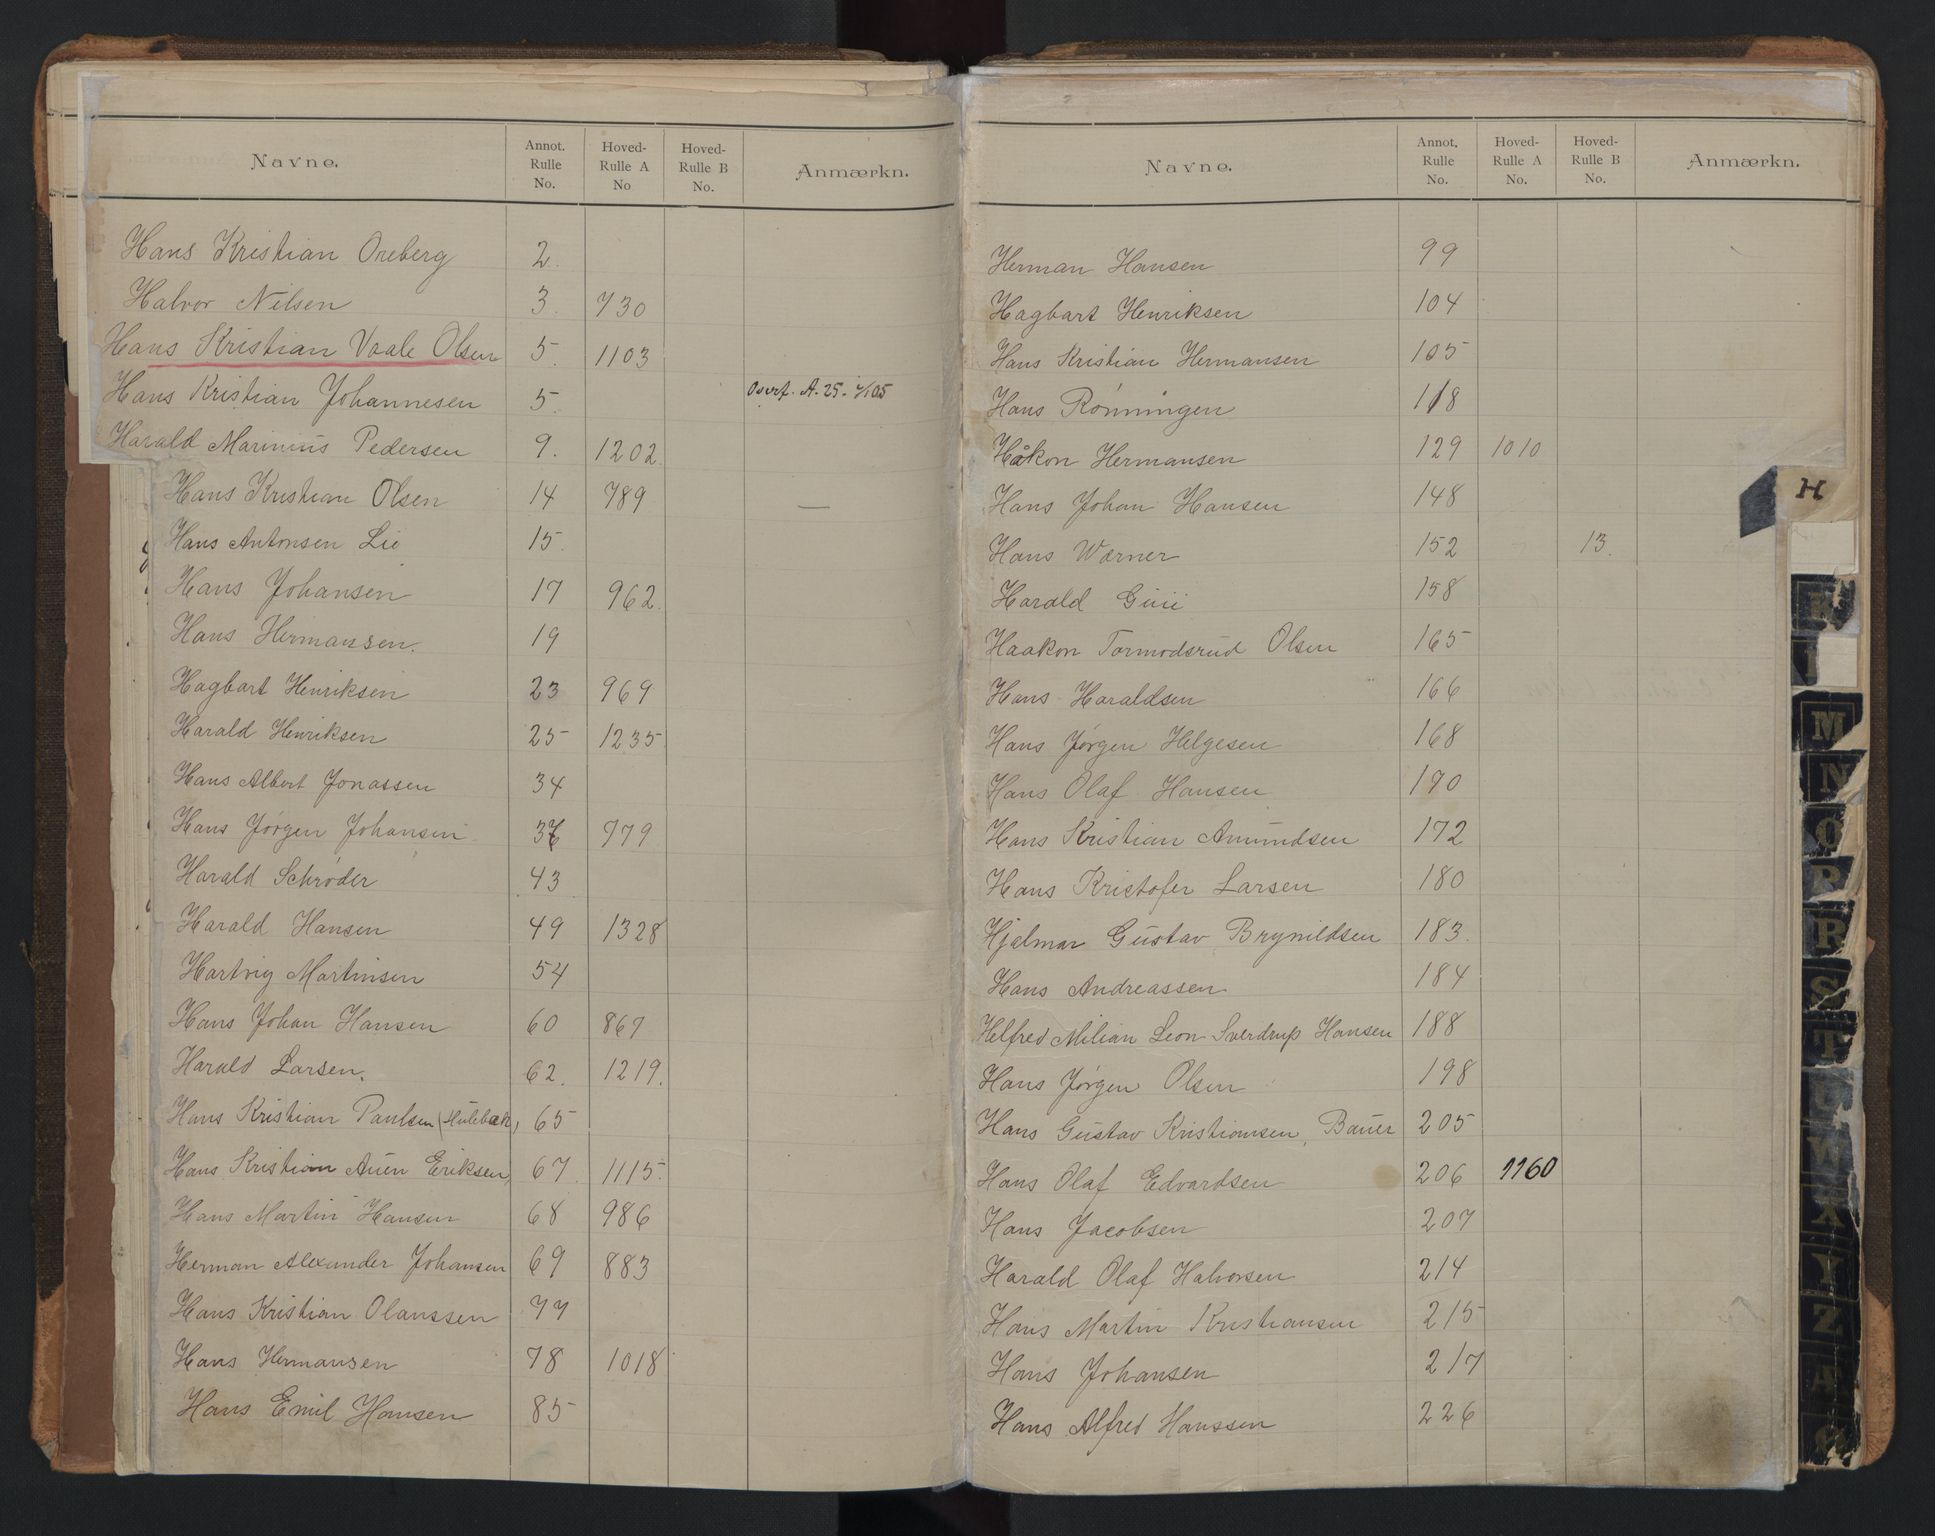 Navne. Annot. Rulle No. Hoved-Rulle A No Hoved-Rulle B No. Anmærkn.
Hans Kristian Oreberg 2.
Halvor Nilsen 3. 730
Hans Kristian Vaale Olsen 5. 1103
Hans Kristian Johannesen 5. Overf. A. 25.
Harald Marinius Pedersen 9. 1202.
Hans Kristian Olsen 14 789 —
Hans Antonsen Lie 15.
Hans Johansen 17 962.
Hans Hermansen. 19
Hagbart Henriksen 23 969
Harald Henriksen 25 1235
Hans Albert Jonassen 34
Hans Jørgen Johansen 779
Harald Schrøder 43
Harald Hansen 49 1328
Hartvig Martinsen 54
Hans Johan Hansen 60 867
Harald Larsen. 62. 1219.
Hans Kristian Paulsen (Hulebak) 65
Hans Kristian Auen Eriksen, 67. 1115.
Hans Martin Hansen 68 986
Herman Alexander Johansen 69 883
Hans Kristian Olanssen 77
Hans Hermansen 78 1018
Hans Emil Hansen 85
Navne. Annot. Rulle No. Hoved-Rulle A No. Hoved-Rulle B No. Anmærkn.
Herman Hansen 99
Hagbart Henriksen 104
Hans Kristian Hermansen 105
Hans Rønningen 118
Håkon Hermansen 129 1010
Hans Johan Hansen 148
Hans Wærner 152 13.
Harald 158
Haakon Tormodsrud Olsen 165
Hans Haraldsen 166
Hans Jørgen Helgesen 168
Hans Olaf Hansen 190
Hans Kristian Amundsen 172
Hans Kristofer Larsen 180
Hjalmar Gustav Brynildsen 183.
Hans Andreassen 184
Helfred Milian Leon Sverdrup Hansen 188
Hans Jørgen Olsen 198
Hans Gustav Kristiansen, Bauer 205
Hans Olaf Edvardsen 206 1160
Hans Jacobsen 207
Harald Olaf Halvorsen 214
Hans Martin Kristiansen 215
Hans Johansen 217
Hans Alfred Hanssen 226
H
K
M
N
O
P
R
S
T
W
X
Y
Z